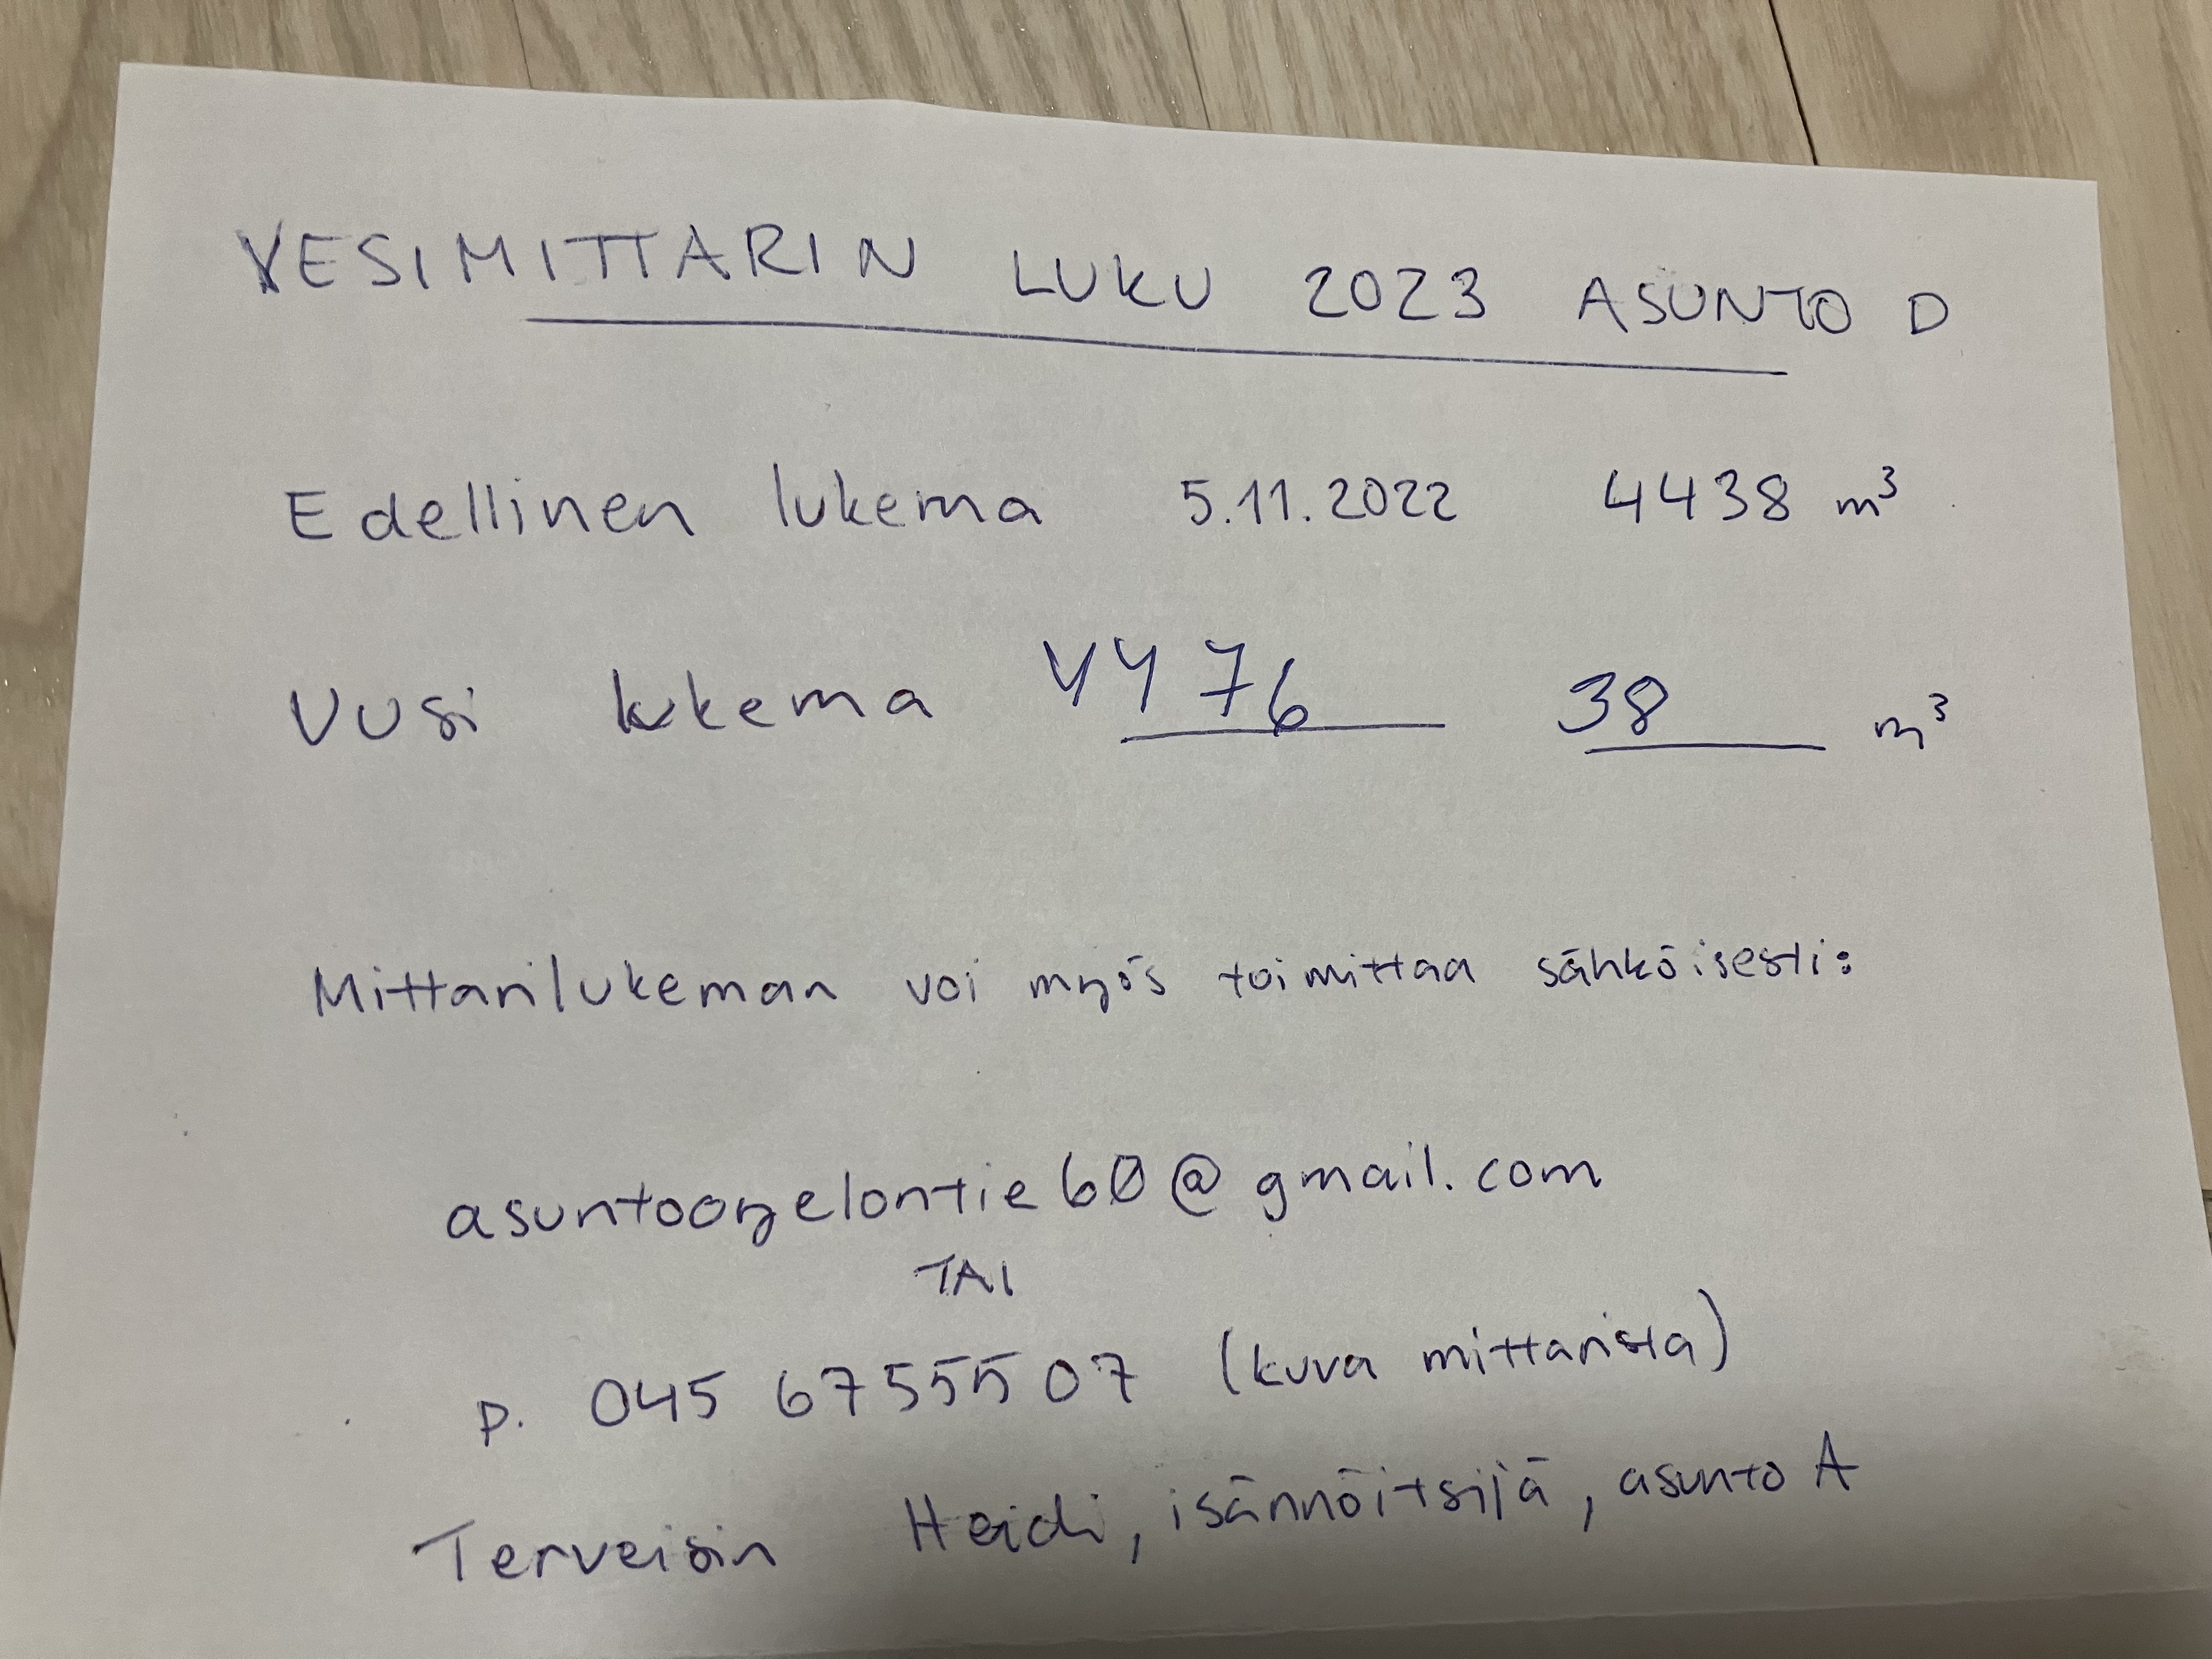 VESIMITTARIN LUKU 2023 ASUNTO D
Edellinen lukema 5.11.2022 4438 m³
Uusi lukema 4476 38 m³
Mittarilukeman voi myös toimittaa sähköisesti:
asuntoorgelontie60@gmail.com
TAI
p. 045 6755507 (kuva mittarista)
Terveisin Heidi, isännöitsijä, asunto A